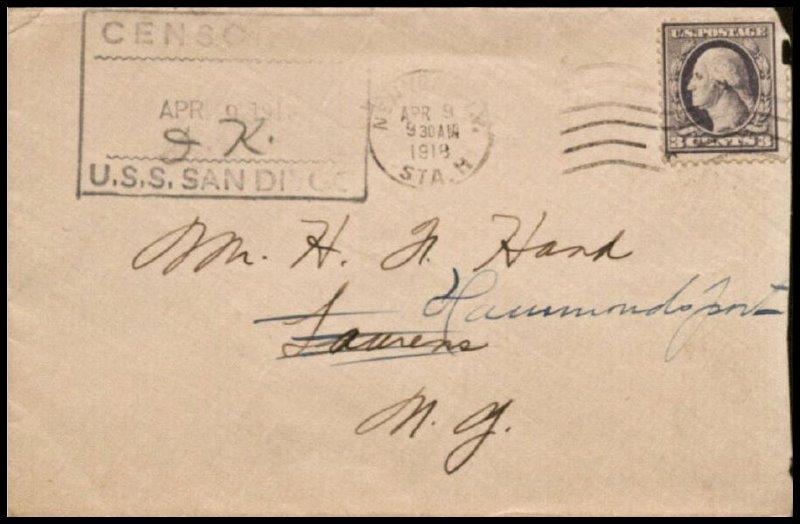 CENSO
APR 9 191
J K.
U.S.S. SAN DIEGO
NEW YORK, N.Y.
APR 9
9 30 AM
1918
STA. H
U.S. POSTAGE
3 CENTS 3
Mr. H. N. Hand
Hammondsport
Laurens
N. Y.